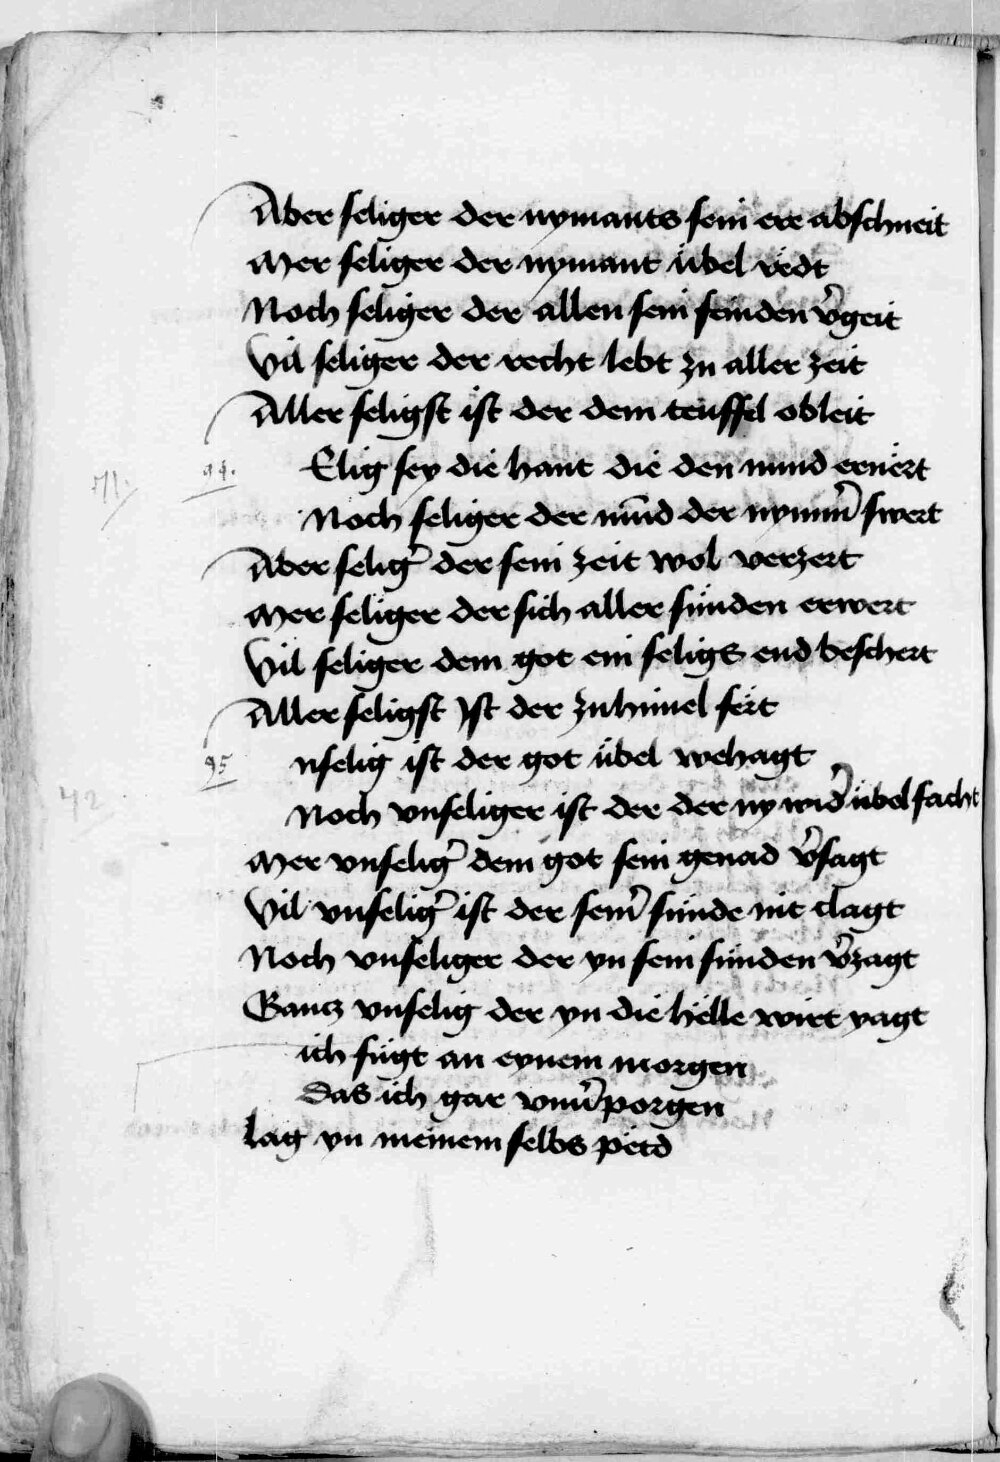 Aber seliger der nymants sein ere abschneit
Mer seliger der nymant übel redt
Noch seliger der allen sein feinden v̉geit
Vil seliger der recht lebt zu aller zeit
Aller seligst ist der dem teuffel obleit
94. Elig sey die hant die den mund ernert
71. Noch seliger der mūd der nymm̉ swert
Aber selig̉ der sein zeit wol verzert
Mer seliger der sich aller sünden erwert
Vil seliger dem got ein seligs end beschert
Aller seligst Ist der zu himel fert
95 nselig ist der got übel wehagt
42 Noch vnseliger ist der der ny wid̉ übel facht
Mer vnselig̉ dem got sein genad v̉sagt
Vil vnselig̉ ist der sein̉ sünde nit clagt
Noch vnseliger der yn sein sünden v̉zagt
Gancz vnselig der yn die helle wirt yagt
ich fügt an eynem morgen
Das ich gar vnủporgen
lag yn meinem selbs petd